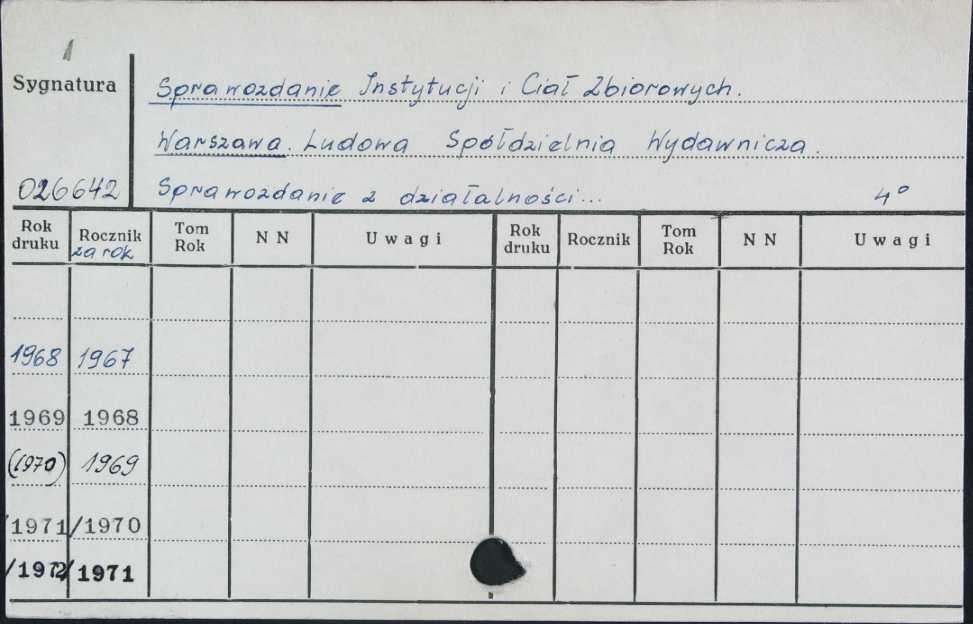 Sygnatura
Sprawozdanie Instytucji i Ciał Zbiorowych.
Warszawa. Ludowa Spółdzielnia Wydawnicza.
026642 Sprawozdanie z działalności... 4°
Rok druku Rocznik za rok Tom Rok N N Uwagi Rok druku Rocznik Tom Rok N N Uwagi
1968 1967
1969 1968
(1970) 1969
/1971/ 1970
/1972/ 1971